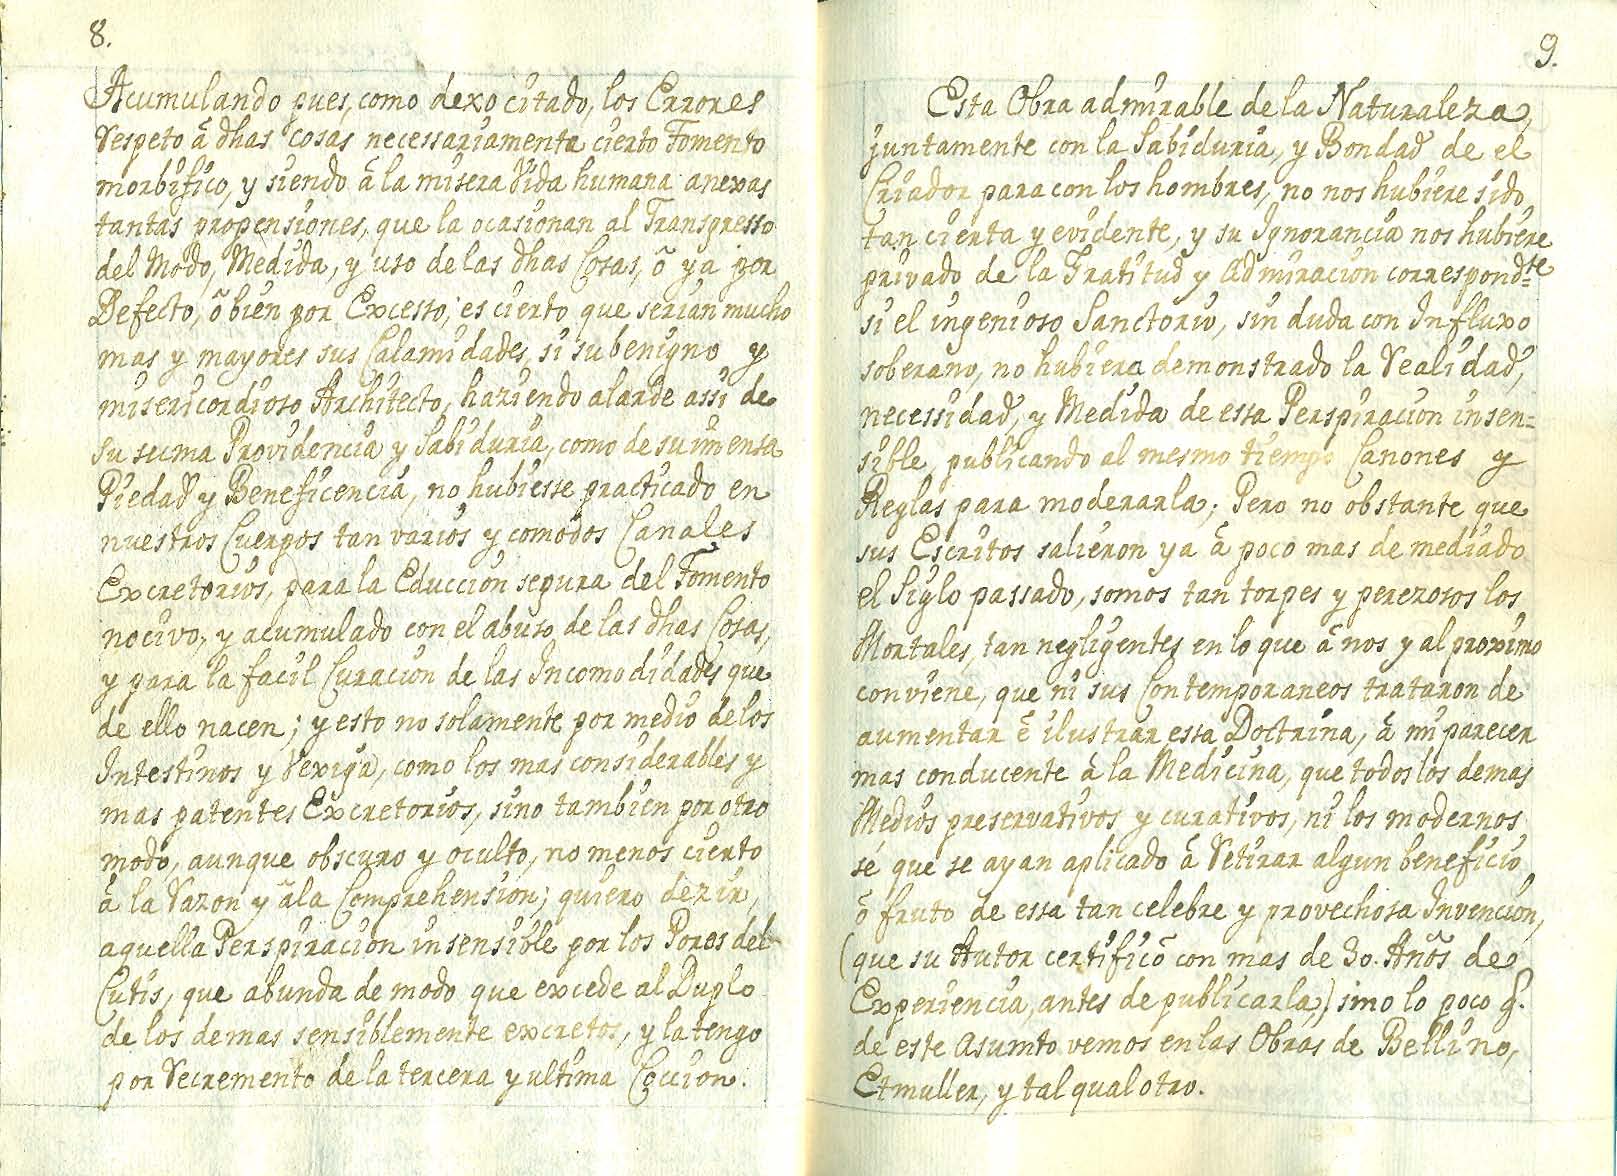 8.
Acumulando pues, como dexo citado, los Errores
Respeto â dhas cosas necessariamente cierto Fomento
morbifico, y siendo â la misera Vida humana anexas
tantas propensiones, que la ocasionan al Transgresso
del Modo, Medida, y uso de las dhas Cosas, ô ya por
Defecto, ô bien por Excesso; es cierto que serian mucho
mas y mayores sus Calamidades, si su benigno y
misericordioso Architecto, haziendo alarde assi de
su suma Providencia y Sabiduria, como de su im̄ensa
Piedad y Beneficencia, no hubiesse practicado en
nuestros Cuerpos tan varios y comodos Canales
Excretorios, para la Educcion segura del Fomento
nocivo, y acumulado con el abuso de las dhas Cosas,
y para la facil Curacion de las Incomodidades que
de ello nacen; y esto no solamente por medio de los
Intestinos y Vexiga, como los mas considerables y
mas patentes Excretorios, sino tambien por otro
modo, aunque obscuro y oculto, no menos cierto
â la Razon y âla Comprehension; quiero dezir,
aquella Perspiracion insensible por los Poros del
Cutis, que abunda de modo que excede al Duplo
de los demas sensiblemente excretos, y la tengo
por Recremento de la tercera y ultima Coccion.
9.
Esta Obra admirable de la Naturaleza,
juntamente con la Sabiduria, y Bondad de el
Criador para con los hombres, no nos hubiere sido
tan cierta y evidente, y su Ignorancia nos hubiere
privado de la Gratitud y Admiracion correspond.te
si el ingenioso Sanctorio, sin duda con Influxo
soberano, no hubiera demonstrado la Realidad,
necessidad, y Medida de essa Perspiracion insen=
sible, publicando al mesmo tiempo Canones y
Reglas para moderarla; Pero no obstante que
sus Escritos salieron ya â poco mas de mediado
el Siglo passado, somos tan torpes y perezosos los
Mortales, tan negligentes en lo que â nos y al proximo
conviene, que ni sus Contemporaneos trataron de
aumentar ê ilustrar essa Doctrina, â mi parecer
mas conducente â la Medicina, que todos los demas
Medios preservativos y curativos, ni los modernos
sé que se ayan aplicado â Retirar algun beneficio
ô fruto de essa tan celebre y provechosa Invencion,
(que su Autor certificô con mas de 30. Años de
Experiencia, antes de publicarla) sino lo poco q.
de este Asumto vemos en las Obras de Bellino,
Etmuller, y tal qual otro.